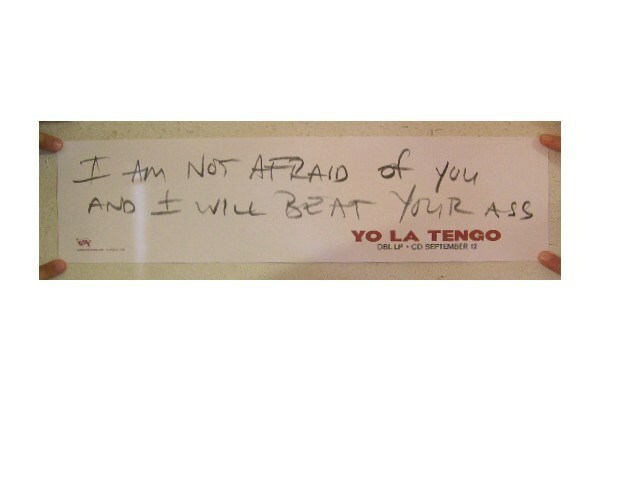 I AM NOT AFRAID of you
AND I WILL BEAT YOUR ASS
YO LA TENGO
DBL LP • CD SEPTEMBER 12